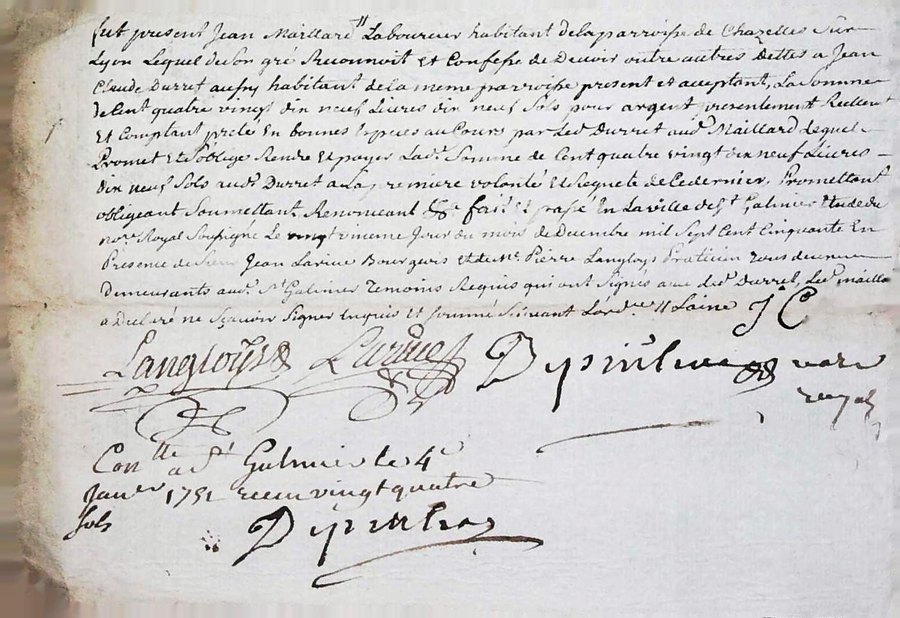 fut present Jean Maillard // Laboureur habitant dela parroisse de Chazelles sur
Lyon Lequel de son gré Reconnoit Et Confesse Devoir outre autres Dettes a Jean
Claude Durret aussy habitant de la meme parroisse present et acceptant, La Somme
de Cent quatre vingt dix neuf Livres dix neuf Sols pour argent presentement
Et Comptant preté En bonnes Especes au Cours par Led. Durret aud. Maillard Lequel
Promet Et s'oblige Rendre Et payer Lad. Somme de Cent quatre vingt dix neuf Livres
dix neuf Sols aud. Durret a La premiere volonté Et Requete de Cedernier, Promettant
obligeant Soumettant Renonceant &c. fait Et passé En La ville de St. Galmier Etude du
nore. Royal Soussigné Le Jour du mois de Decembre mil Sept Cent Cinquante En
Presence de Sieur Jean Larive Bourgeois et de Me. Pierre Langloys Praticien
Demeurants aud. St. Galmier Temoins Requis qui ont Signés avec led. Durret, Led. Maillard
a Declaré ne Sçavoir Signer Enquis et Sommé Suivant L'ordce. // Laine J C
Langloys Larive royal
Conlle a St Galmier le 4e
Janer 1751 receu vingt quatre
sols